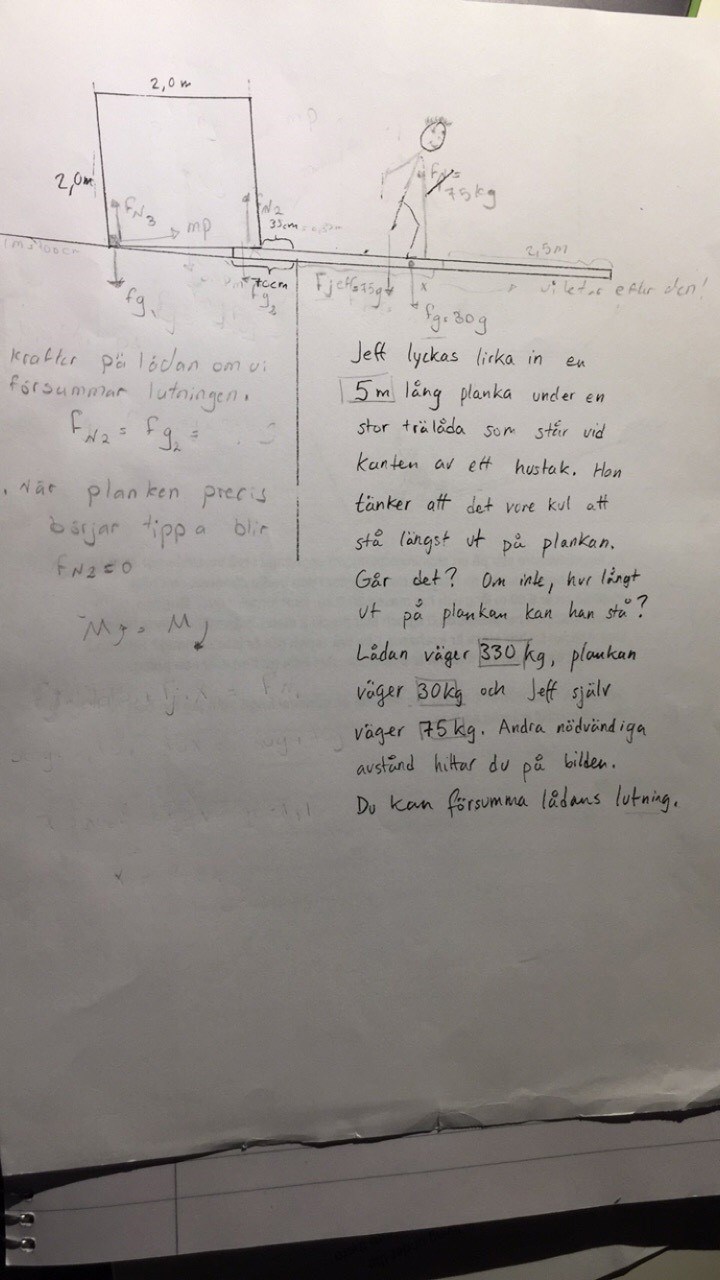 2,0m
2,0m
FN3
mp
FN2
33cm
FN =
75kg
2,5m
70cm
fg1
Fg2
Fjeff=75g
x
vi letar efter den!
fg=30g
krafter på lådan om vi
försummar lutningen.
FN2 = fg2 =
. När planken precis
börjar tippa blir
FN2=0
M = M
Jeff lyckas lirka in en
5m lång planka under en
stor trälåda som står vid
kanten av ett hustak. Han
tänker att det vore kul att
stå längst ut på plankan.
Går det? Om inte, hur långt
ut på plankan kan han stå?
Lådan väger 330 kg, plankan
väger 30kg och Jeff själv
väger 75 kg. Andra nödvändiga
avstånd hittar du på bilden.
Du kan försumma lådans lutning.